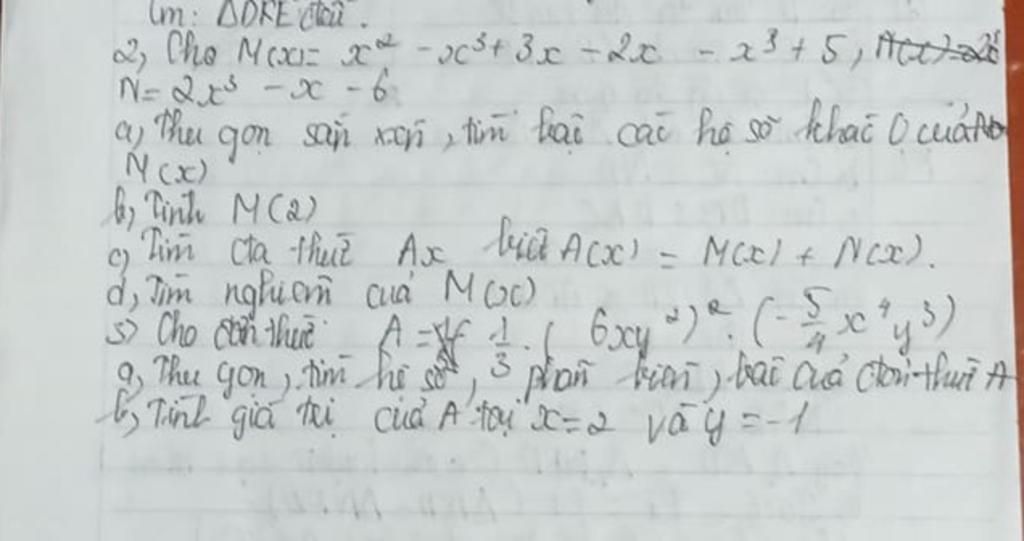 Cm: ΔDKE đều.
2, Cho M(x)= x² - x³ + 3x - 2x - x³ + 5,
N= 2x³ - x - 6
a, Thu gọn sắp xếp, tìm bậc các hệ số khác 0 của
M(x)
b, Tính M(2)
c, Tìm đa thức Ax biết A(x) = M(x) + N(x).
d, Tìm nghiệm của M(x)
3) Cho đơn thức A = 1/3 . ( 6xy²)² . (-5/4 x⁴y³)
a, Thu gọn, tìm hệ số, phần biến, bậc của đơn thức A
b, Tính giá trị của A tại x=2 và y = -1